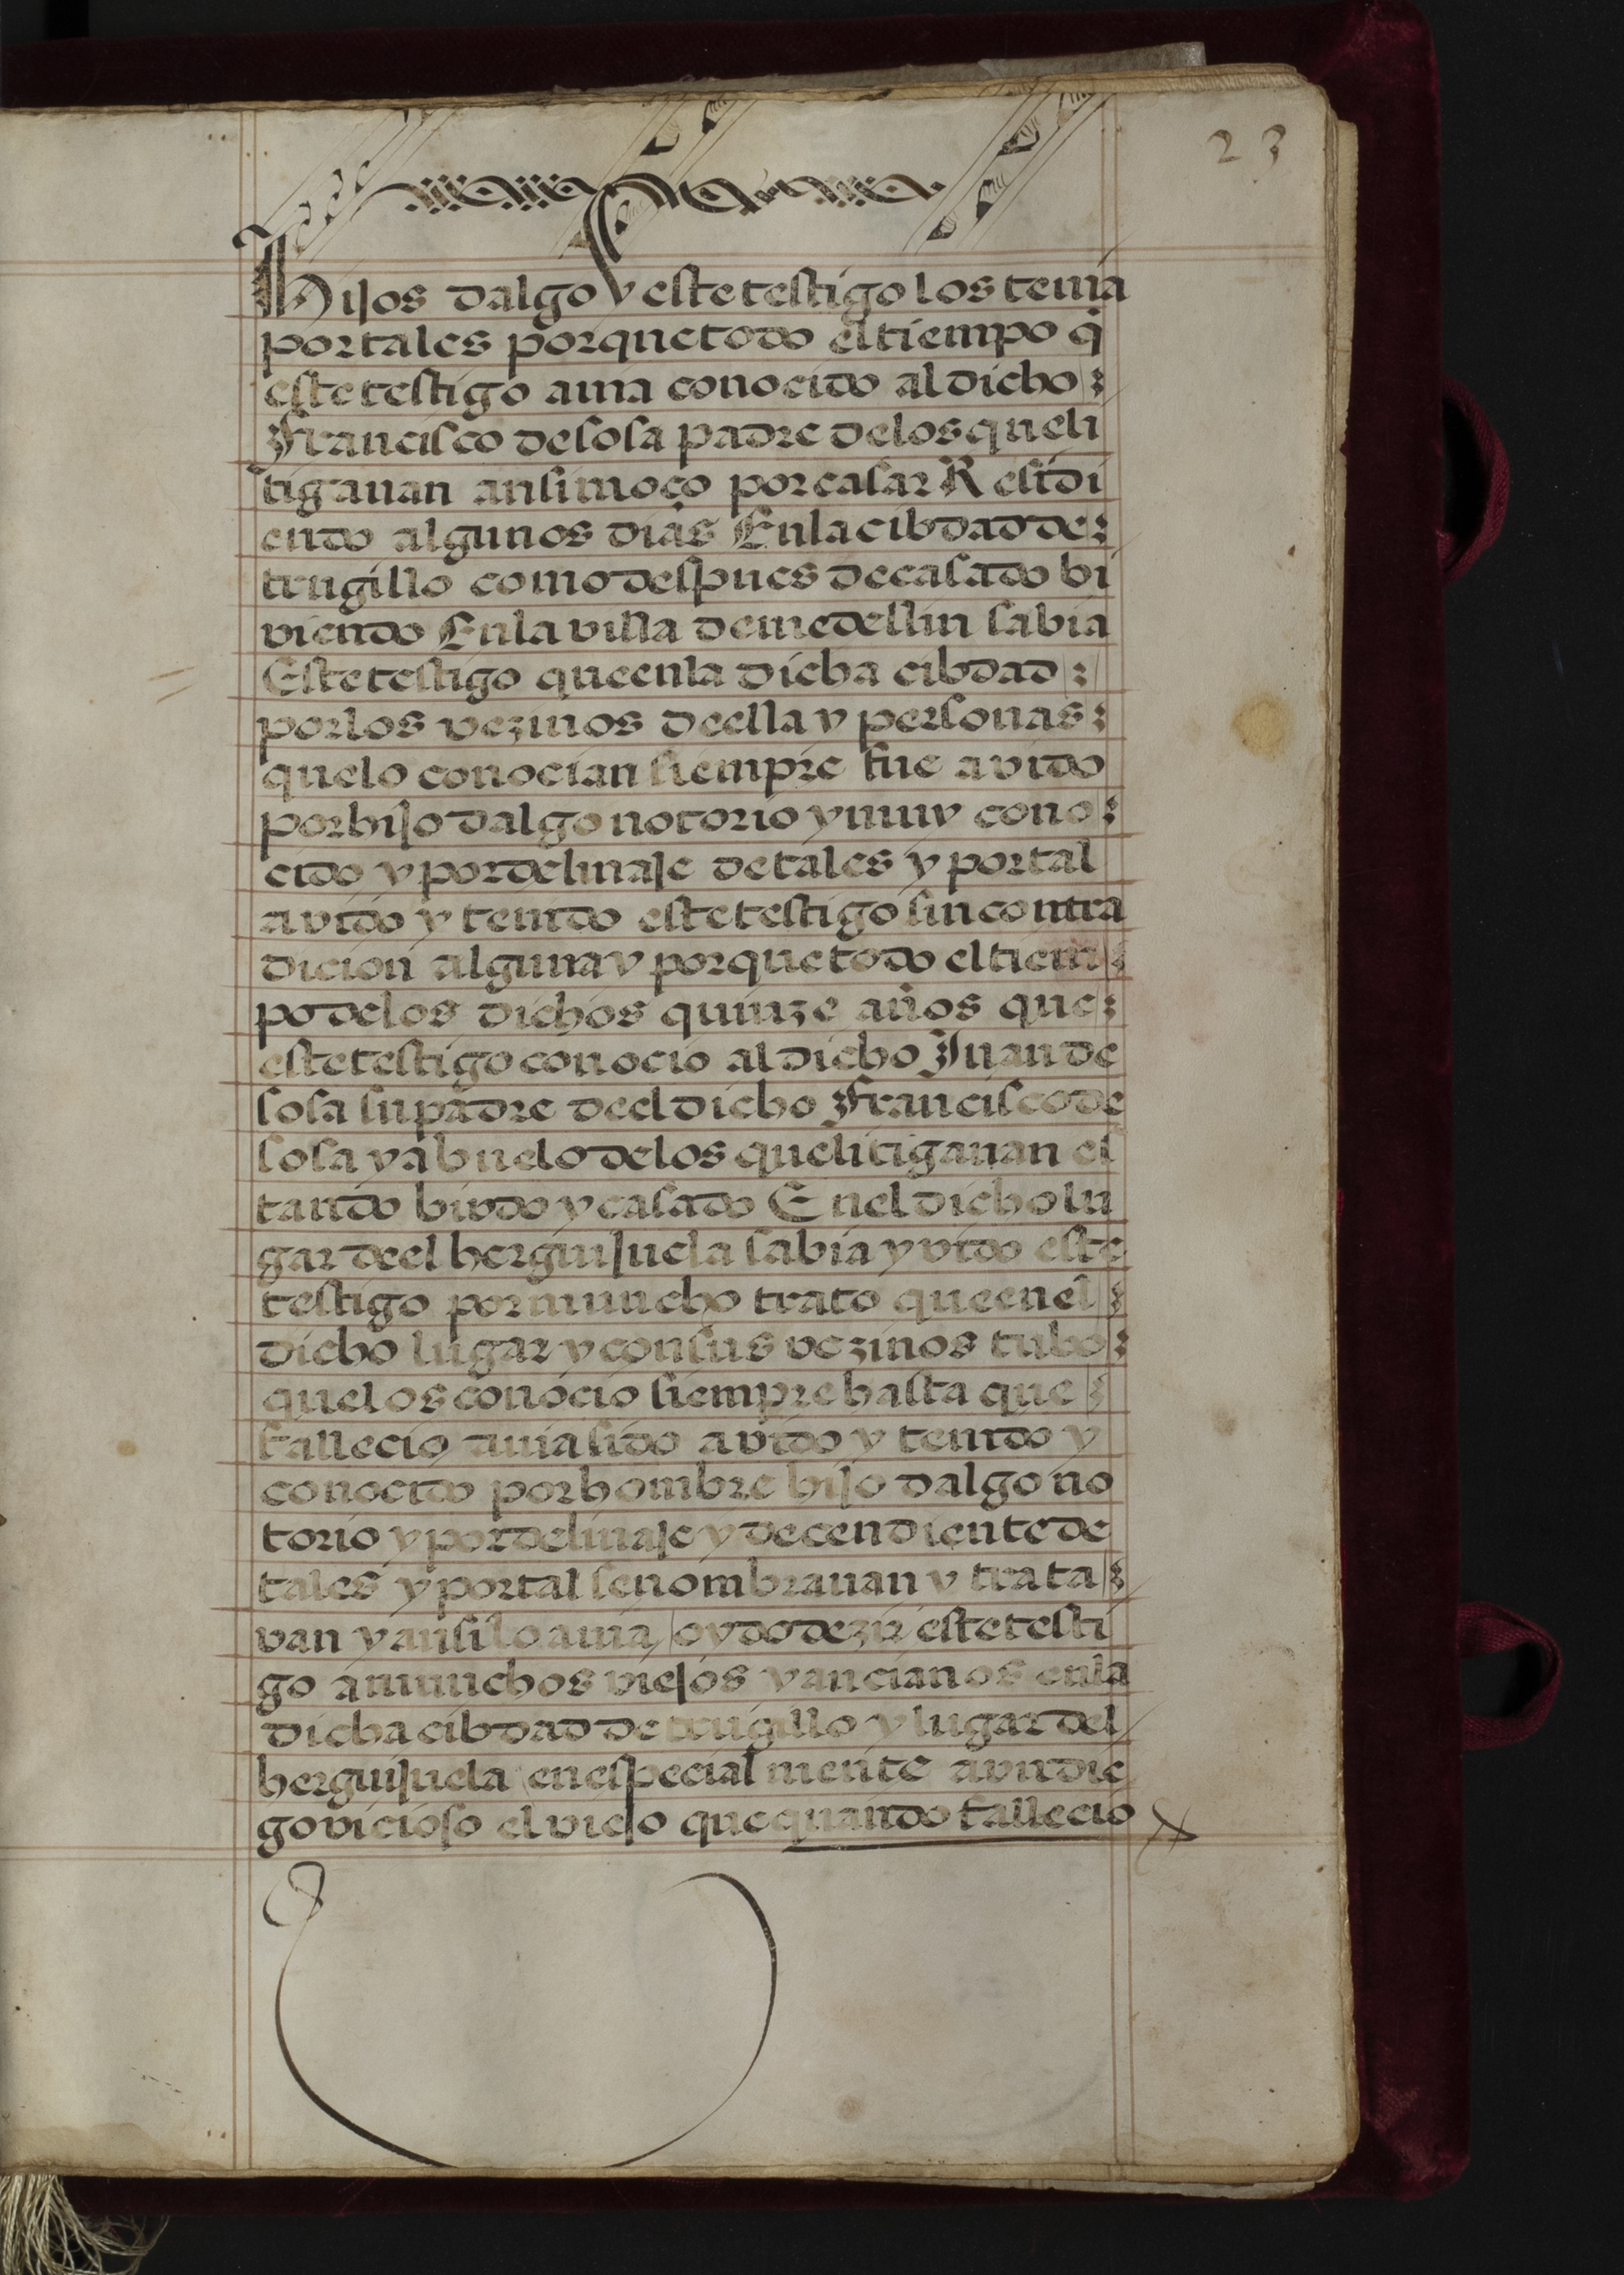 23
Hijos dalgo y este testigo los tenia
por tales porque todo el tiempo q̃
este testigo auia conocido al dicho :
Francisco de sosa padre de los que li
tigauan ansi moço por casar Resydi
endo algunos dias En la cibdad de :
trugillo como despues de casado bi
viendo En la villa de medellin sabia
Este testigo que en la dicha cibdad :
por los vezinos de ella y personas :
que lo conocian siempre fue avido
por hijo dalgo notorio y muy cono :
cido y por de linaje de tales y por tal
avido y tenido este testigo sin contra
dicion alguna y porque todo el tiem :
po de los dichos quinze años que :
este testigo conocio al dicho Juan de
sosa su padre de el dicho Francisco de
sosa y abuelo de los que litigauan es
tando biudo y casado En el dicho lu
gar de el herguijuela sabia y vido este
testigo por muncho trato que en el :
dicho lugar y con sus vezinos tubo :
que los conocio siempre hasta que :
fallecio auia sido avido y tenido y
conocido por hombre hijo dalgo no
torio y por de linaje y decendiente de
tales y por tal se nombrauan y trata :
van y ansi lo auia oydo dezir este testi
go a munchos viejos y ancianos en la
dicha cibdad de trugillo y lugar del
herguijuela en especial mente a un die
go vicioso el viejo que quando fallecio